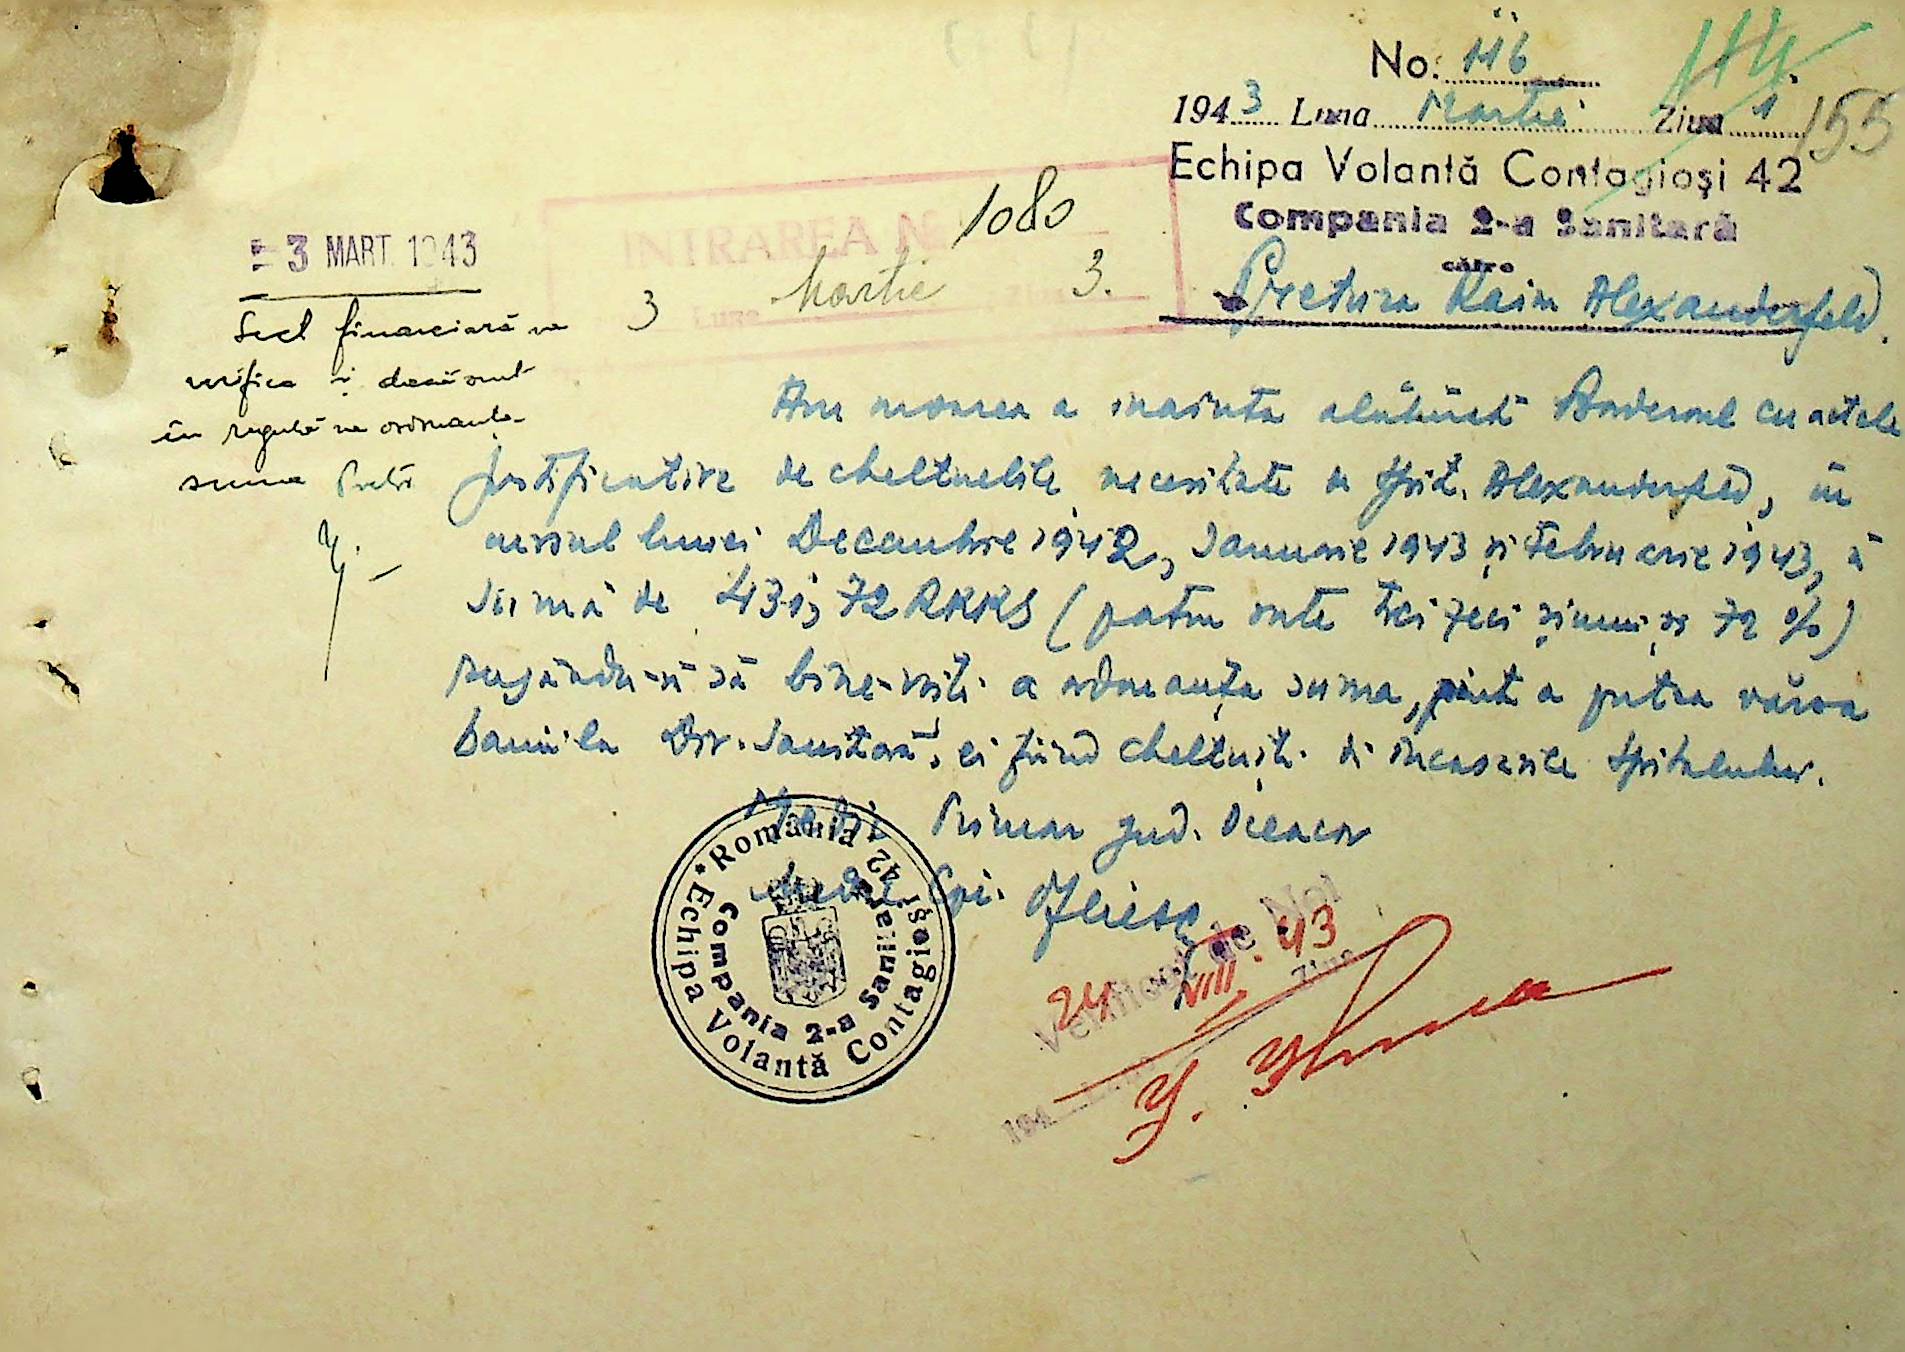 No. 116
114.
1943 Luna Martie Ziua 1
155
Echipa Volantă Contagioşi 42
Compania 2-a Sanitară
către
Pretura Raion Alexanderfeld.
INTRAREA No 1080
3 Luna Martie Ziua 3.
= 3 MART. 1943
Secţ financiară va
verifica şi dacă sunt
în regulă va ordonanţa
suma Pretor
Am onoarea a inainta alăturat Borderoul cu actele
justificative de cheltuelile necesitate de Spit. Alexanderfeld, în
cursul lunei Decembrie 1942, Ianuarie 1943 şi Februarie 1943, în
sumă de 431,72 RKKS (patru sute trei zeci şi unu şi 72 %)
rugându-vă să bine-voiţi a ordonanţa suma, pint a putea vărsa
banii la Dir. Sanitară, ei fiind cheltuiţi din incasările spitalului.
Medic Primar jud. Oceacov
Medic Cpt.
România
* Echipa Volantă Contagioşi 42
Compania 2-a Sanitară
Verificat de Noi
24 VIII. 43
194 Luna Ziua